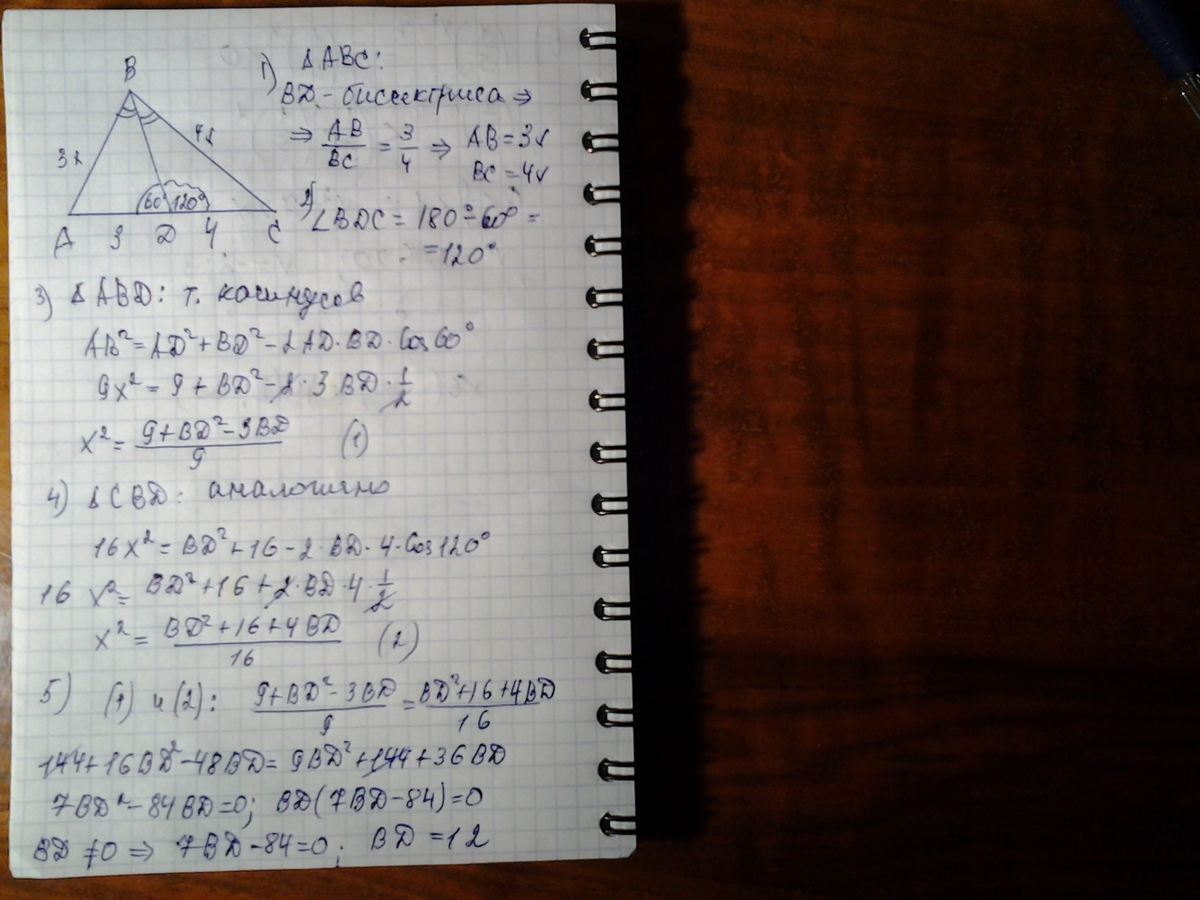 B
3x
4x
60° 120°
A 3 D 4 C
1) ΔABC:
BD - биссектриса ⇒
⇒ AB/BC = 3/4 ⇒ AB = 3x
BC = 4x
2) ∠BDC = 180° - 60° =
= 120°
3) ΔABD: т. косинусов
AB² = AD² + BD² - 2AD·BD·Cos60°
9x² = 9 + BD² - 2·3BD·1/2
x² = (9+BD²-3BD)/9 (1)
4) ΔCBD: аналогично
16x² = BD² + 16 - 2·BD·4·Cos120°
16 x² = BD² + 16 + 2·BD·4·1/2
x² = (BD²+16+4BD)/16 (2)
5) (1) и (2): (9+BD²-3BD)/9 = (BD²+16+4BD)/16
144+16BD²-48BD = 9BD²+144+36BD
7BD²-84BD=0; BD(7BD-84)=0
BD≠0 ⇒ 7BD-84=0; BD=12